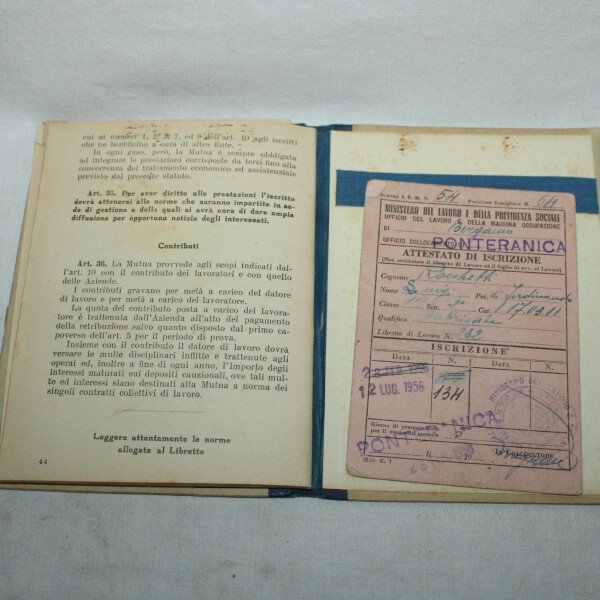 cui ai numeri 1, 2, 3, 7, ed 8 dell'art. 10 agli iscritti
che ne beneficino a cura di altro Ente.
In ogni caso, però, la Mutua è sempre obbligata
ad integrare le prestazioni corrisposte da terzi fino alla
concorrenza del trattamento economico ed assistenziale
previsto dal presente statuto.
Art. 35. Per aver diritto alle prestazioni l'iscritto
dovrà attenersi alle norme che saranno impartite in se-
de di gestione e delle quali si avrà cura di dare ampia
diffusione per opportuna notizia degli interessati.
Contributi
Art. 36. La Mutua provvede agli scopi indicati dal-
l'art. 10 con il contributo dei lavoratori e con quello
delle Aziende.
I contributi gravano per metà a carico del datore
di lavoro e per metà a carico del lavoratore.
La quota del contributo posta a carico del lavora-
tore è trattenuta dall'Azienda all'atto del pagamento
della retribuzione salvo quanto disposto dal primo ca-
poverso dell'art. 5 per il periodo di prova.
Insieme con il contributo il datore di lavoro dovrà
versare le multe disciplinari inflitte e trattenute agli
operai ed, inoltre a fine di ogni anno, l'importo degli
interessi maturati sui depositi cauzionali, ove tali mul-
te ed interessi siano destinati alla Mutua a norma dei
singoli contratti collettivi di lavoro.
Leggere attentamente le norme
allegate al Libretto
44
54
MINISTERO DEL LAVORO E DELLA PREVIDENZA SOCIALE
UFFICIO DEL LAVORO E DELLA MASSIMA OCCUPAZIONE
DI Bergamo
UFFICIO PONTERANICA
ATTESTATO DI ISCRIZIONE
(Non sostituisce il libretto di Lavoro nè il foglio di avv. al Lavoro)
Cognome
Nome Luigi Pat. di Ferdinando
Classe Sett. Cat.
Qualifica
Libretto di Lavoro N. 232
ISCRIZIONE
DATA N. DATA N.
12 LUG. 1956 134
Giorno di presentazione
per il controllo mensile
PONTERANICA
IL COLLOCATORE
Mod C. 1